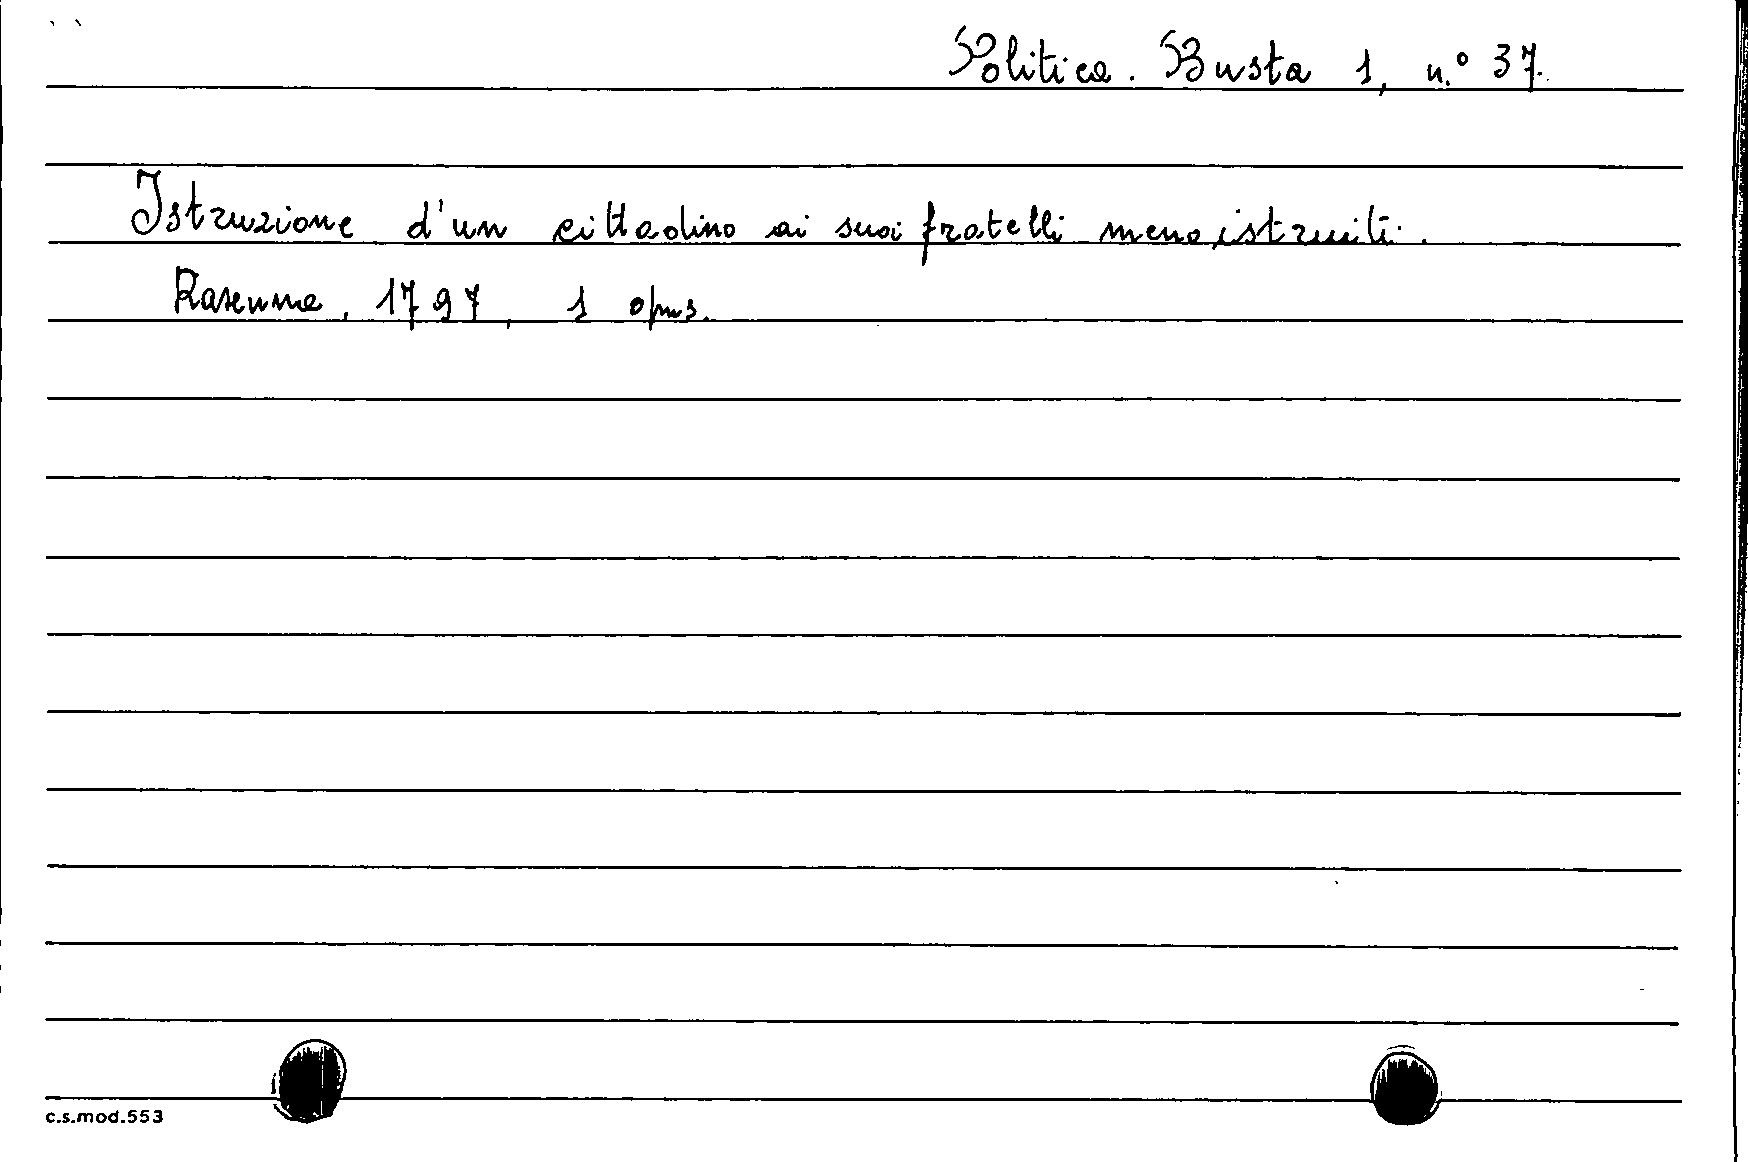 Politica. Busta 1, n.° 37.
Istruzione d'un cittadino ai suoi fratelli meno istruiti.
Ravenna, 1797, 1 opus.
c.s.mod.553